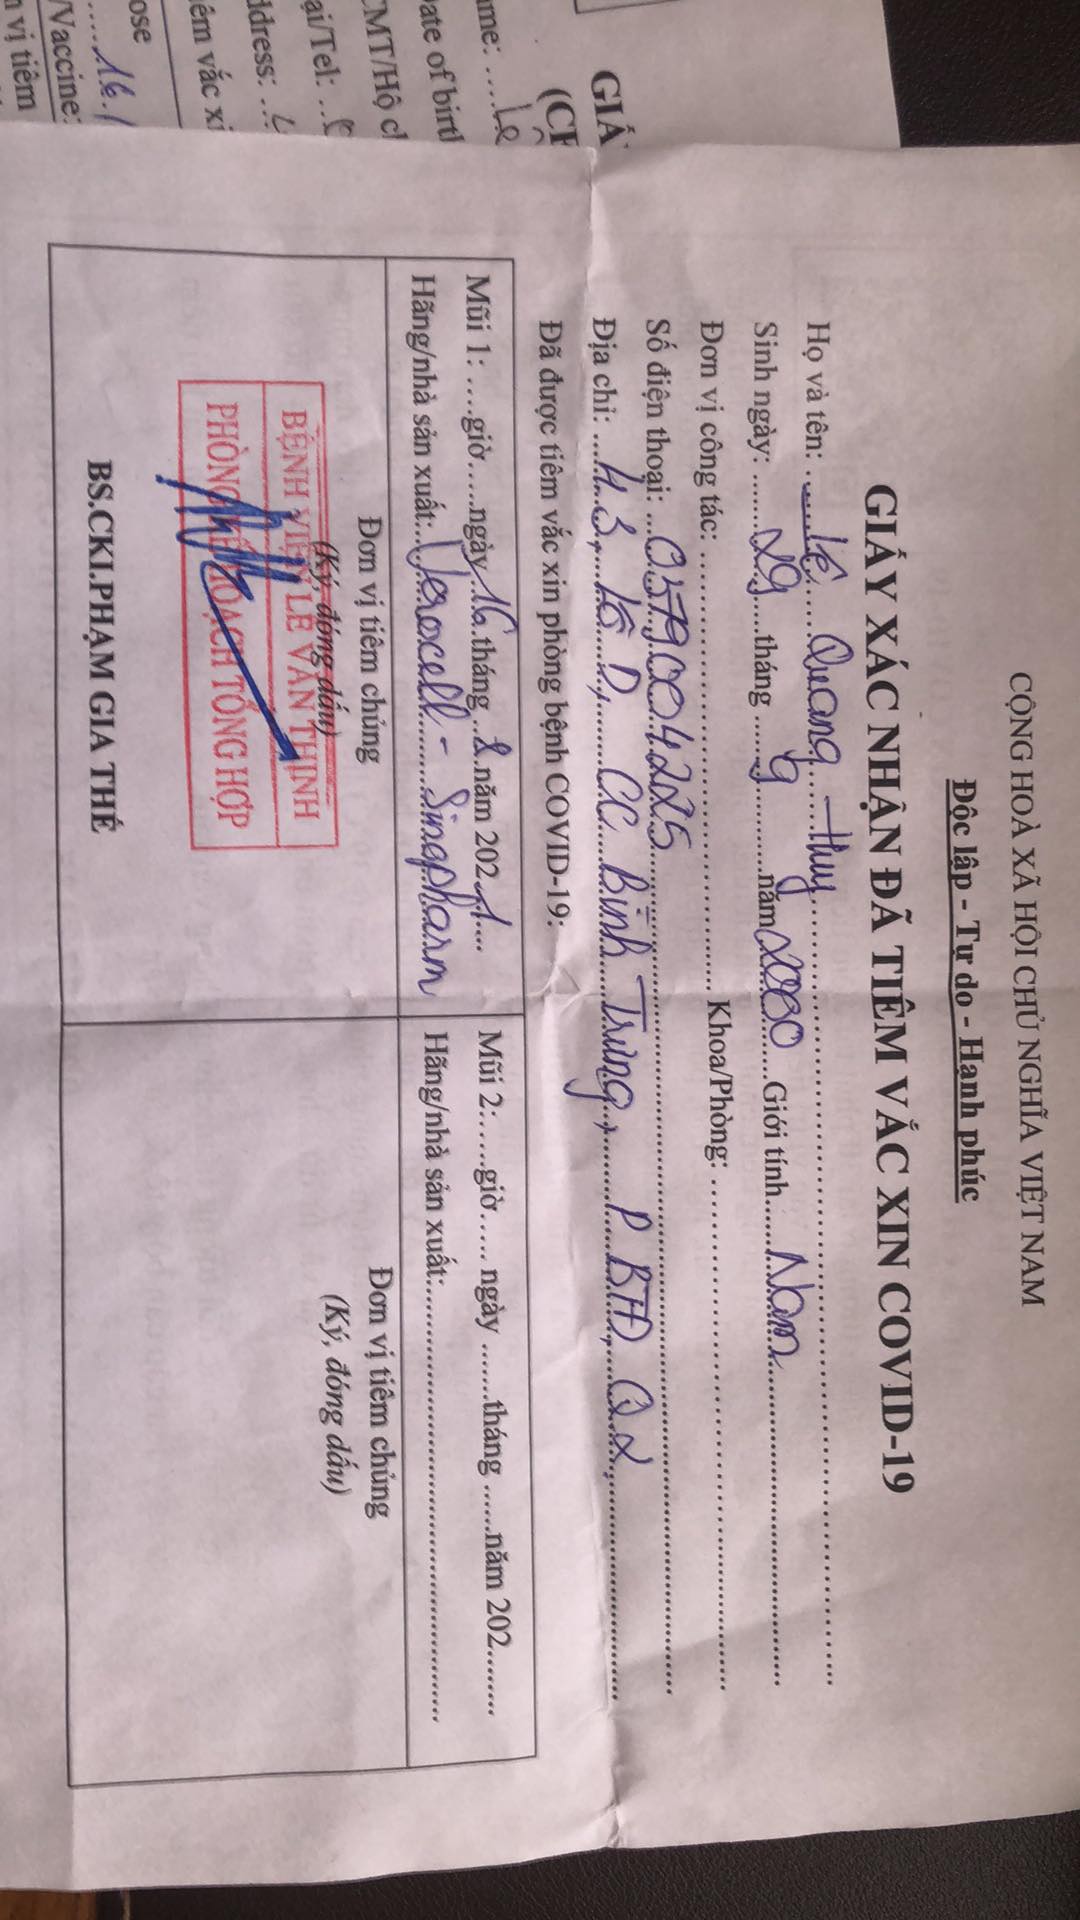 CỘNG HOÀ XÃ HỘI CHỦ NGHĨA VIỆT NAM
Độc lập - Tự do - Hạnh phúc
GIẤY XÁC NHẬN ĐÃ TIÊM VẮC XIN COVID-19
Họ và tên: Lê Quang Huy
Sinh ngày: 29 tháng 9 năm 2000 Giới tính Nam
Đơn vị công tác: Khoa/Phòng:
Số điện thoại: 0579004225
Địa chỉ: 43, lô D, CC Bình Trưng, P BTĐ, Q2
Đã được tiêm vắc xin phòng bệnh COVID-19:
Mũi 1: ....giờ......ngày 16 tháng 8 năm 2021
Hãng/nhà sản xuất: Verocell - Singpharm
Đơn vị tiêm chủng
(Ký, đóng dấu)
BỆNH VIỆN LÊ VĂN THỊNH
PHÒNG KẾ HOẠCH TỔNG HỢP
BS.CKI.PHẠM GIA THẾ
Mũi 2:.....giờ..... ngày ......tháng ......năm 202.......
Hãng/nhà sản xuất:
Đơn vị tiêm chủng
(Ký, đóng dấu)
GIẤ
(CE
ame: Lê
Date of birt
CMT/Hộ c
ại/Tel:
ddress:
iêm vắc xi
ose
16.
/Vaccine:
n vị tiêm